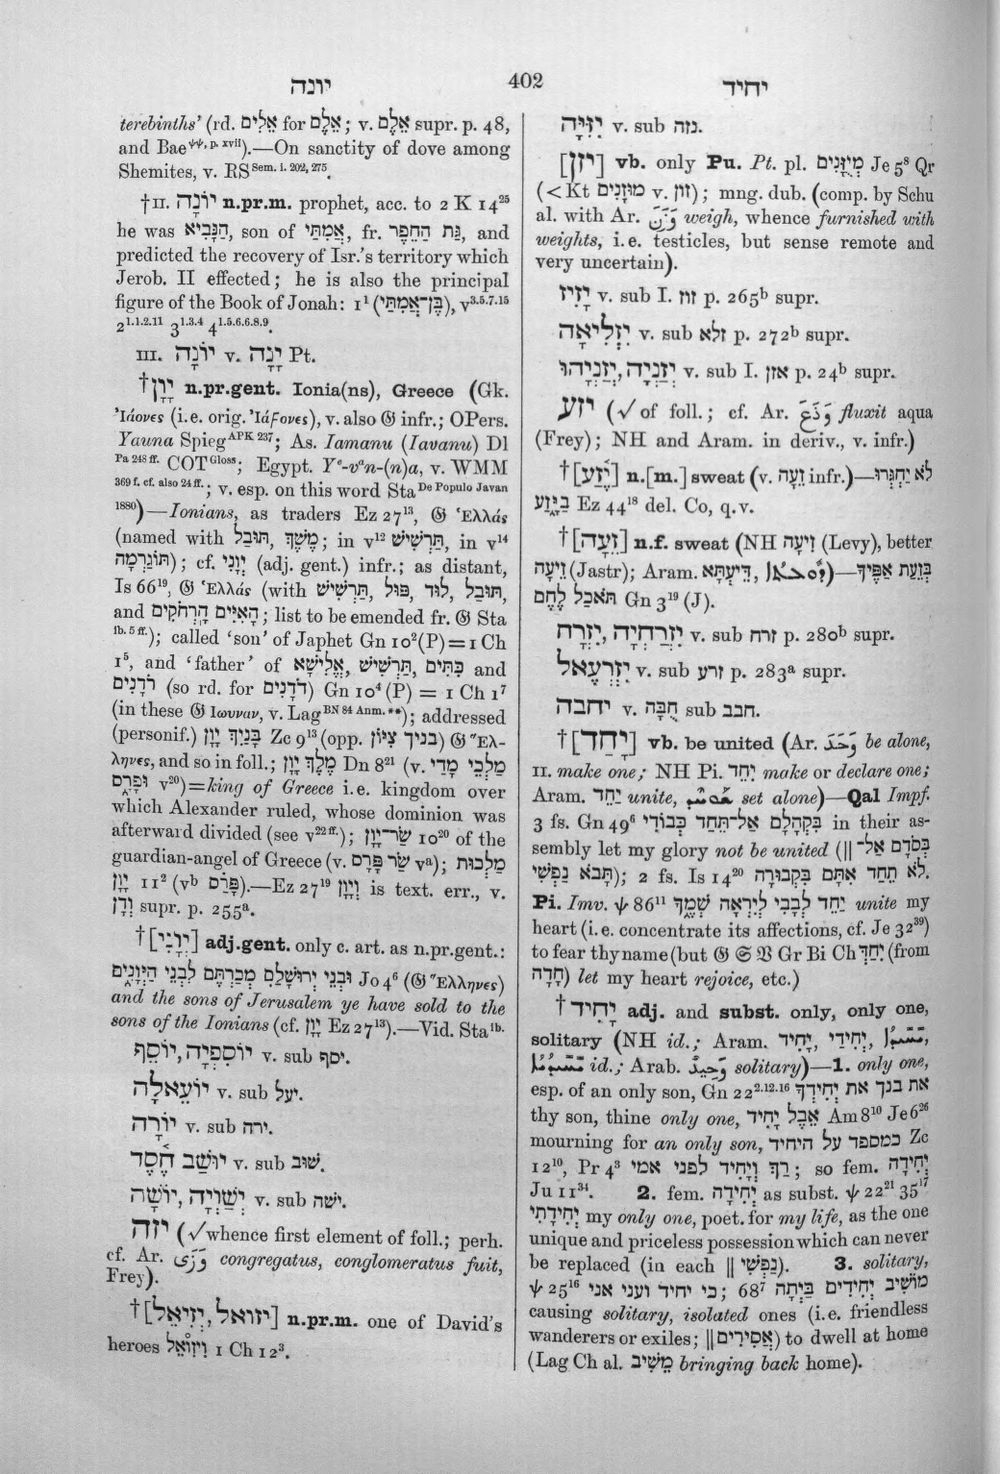 יונה
402
יחיד
terebinths’ (rd. אֵלִים for אֵלָם; v. אֵלָם supr. p. 48,
and Bae ψψ, p. xvii).—On sanctity of dove among
Shemites, v. RS Sem. i. 202, 275.
†II. יוֹנָה n.pr.m. prophet, acc. to 2 K 14²⁵
he was הַנָּבִיא, son of אֲמִתַּי, fr. גַּת הַחֵפֶר, and
predicted the recovery of Isr.’s territory which
Jerob. II effected; he is also the principal
figure of the Book of Jonah: 1¹ (בֶּן־אֲמִתַּי), v³·⁵·⁷·¹⁵
2¹·¹·²·¹¹ 3¹·³·⁴ 4¹·⁵·⁶·⁶·⁸·⁹.
III. יוֹנָה v. יָנָה Pt.
†יָוָן n.pr.gent. Ionia(ns), Greece (Gk.
Ἰάονες (i.e. orig. Ἰάϝονες), v. also 𝔊 infr.; OPers.
Yauna Spieg APK 237; As. Iamanu (Iavanu) Dl
Pa 248 ff. COT Gloss; Egypt. Yᵉ-vᵃn-(n)a, v. WMM
369 f. cf. also 24 ff.; v. esp. on this word Sta De Populo Javan
1880)—Ionians, as traders Ez 27¹³, 𝔊 Ἑλλάς
(named with תּוּבַל, מֶשֶׁךְ; in v¹² תַּרְשִׁישׁ, in v¹⁴
תּוֹגַרְמָה); cf. יְוָנִי (adj. gent.) infr.; as distant,
Is 66¹⁹, 𝔊 Ἑλλάς (with תּוּבַל, לוּד, פּוּל, תַּרְשִׁישׁ,
and הָאִיִּים הָרְחֹקִים; list to be emended fr. 𝔊 Sta
ib. 5 ff.); called ‘son’ of Japhet Gn 10²(P)=1 Ch
1⁵, and ‘father’ of אֱלִישָׁא, תַּרְשִׁישׁ, כִּתִּים and
רֹדָנִים (so rd. for דֹּדָנִים) Gn 10⁴ (P) = 1 Ch 1⁷
(in these 𝔊 Ιωυναν, v. Lag BN 84 Anm. **); addressed
(personif.) בָּנַיִךְ יָוָן Zc 9¹³ (opp. בניך ציון) 𝔊 Ἕλ-
ληνες, and so in foll.; מֶלֶךְ יָוָן Dn 8²¹ (v. מַלְכֵי מָדַי
וּפָרָס v²⁰)=king of Greece i.e. kingdom over
which Alexander ruled, whose dominion was
afterward divided (see v²² ff.); שַׂר־יָוָן 10²⁰ of the
guardian-angel of Greece (v. שַׂר פָּרָס vᵃ); מַלְכוּת
יָוָן 11² (vᵇ פָּרַס).—Ez 27¹⁹ וְיָוָן is text. err., v.
וְדָן supr. p. 255ᵃ.
†[יְוָנִי] adj.gent. only c. art. as n.pr.gent.:
וּבְנֵי יְרוּשָׁלַםִ מְכַרְתֶּם לִבְנֵי הַיְּוָנִים Jo 4⁶ (𝔊 Ἕλληνες)
and the sons of Jerusalem ye have sold to the
sons of the Ionians (cf. יָוָן Ez 27¹³).—Vid. Sta ib.
יוֹסִפְיָה, יוֹסֵף v. sub יסף.
יוֹעֵאלָה v. sub יעל.
יוֹרָה v. sub ירה.
יוּשַׁב חֶסֶד v. sub שׁוּב.
יוֹשַׁוְיָה, יוֹשָׁה v. sub ישׁה.
יזה (√whence first element of foll.; perh.
cf. Ar. وَزَى congregatus, conglomeratus fuit,
Frey).
†[יזואל, יְזִיאֵל] n.pr.m. one of David’s
heroes וִיזוֹאֵל 1 Ch 12³.
יִזִּיָּה v. sub נזה.
[יזן] vb. only Pu. Pt. pl. מְיֻזָּנִים Je 5⁸ Qr
(<Kt מוּזָנִים v. זון); mng. dub. (comp. by Schu
al. with Ar. وَزَنَ weigh, whence furnished with
weights, i.e. testicles, but sense remote and
very uncertain).
יָזִיז v. sub I. זוז p. 265ᵇ supr.
יִזְלִיאָה v. sub זלא p. 272ᵇ supr.
יַזַנְיָה, יְזַנְיָהוּ v. sub I. אזן p. 24ᵇ supr.
יזע (√of foll.; cf. Ar. وَذَعَ fluxit aqua
(Frey); NH and Aram. in deriv., v. infr.)
†[יֶזַע] n.[m.] sweat (v. זֵעָה infr.)—לֹא יַחְגְּרוּ
בַּיָּזַע Ez 44¹⁸ del. Co, q.v.
†[זֵעָה] n.f. sweat (NH זֵיעָה (Levy), better
זֵיעָה (Jastr); Aram. דֵּיעֲתָא, )—בְּזֵעַת אַפֶּיךָ
תֹּאכַל לֶחֶם Gn 3¹⁹ (J).
יִזְרַחְיָה, יִזְרָח v. sub זרח p. 280ᵇ supr.
יִזְרְעֶאל v. sub זרע p. 283ᵃ supr.
יחבה v. חֻבָּה sub חבב.
†[יָחַד] vb. be united (Ar. وَحَدَ be alone,
II. make one; NH Pi. יִחֵד make or declare one;
Aram. יַחֵד unite, set alone)—Qal Impf.
3 fs. Gn 49⁶ בִּקְהָלָם אַל־תֵּחַד כְּבוֹדִי in their as-
sembly let my glory not be united (‖ בְּסֹדָם אַל־
תָּבֹא נַפְשִׁי); 2 fs. Is 14²⁰ לֹא תֵחַד אִתָּם בִּקְבוּרָה.
Pi. Imv. ψ 86¹¹ יַחֵד לְבָבִי לְיִרְאָה שְׁמֶךָ unite my
heart (i.e. concentrate its affections, cf. Je 32³⁹)
to fear thy name (but 𝔊 𝔖 𝔙 Gr Bi Ch יִחַדְּ (from
חָדָה) let my heart rejoice, etc.)
†יָחִיד adj. and subst. only, only one,
solitary (NH id.; Aram. יָחִיד, יְחִידַי,
id.; Arab. وَحِيدٌ solitary)—1. only one,
esp. of an only son, Gn 22²·¹²·¹⁶ את בנך את יְחִידְךָ
thy son, thine only one, אֵבֶל יָחִיד Am 8¹⁰ Je 6²⁶
mourning for an only son, כמספד על היחיד Zc
12¹⁰, Pr 4³ רַךְ וְיָחִיד לפני אמי; so fem. יְחִידָה
Ju 11³⁴. 2. fem. יְחִידָה as subst. ψ 22²¹ 35¹⁷
יְחִידָתִי my only one, poet. for my life, as the one
unique and priceless possession which can never
be replaced (in each ‖ נַפְשִׁי). 3. solitary,
ψ 25¹⁶ כי יחיד ועני אני; 68⁷ מוֹשִׁיב יְחִידִים בַּיְתָה
causing solitary, isolated ones (i.e. friendless
wanderers or exiles; ‖ אֲסִירִים) to dwell at home
(Lag Ch al. מֵשִׁיב bringing back home).